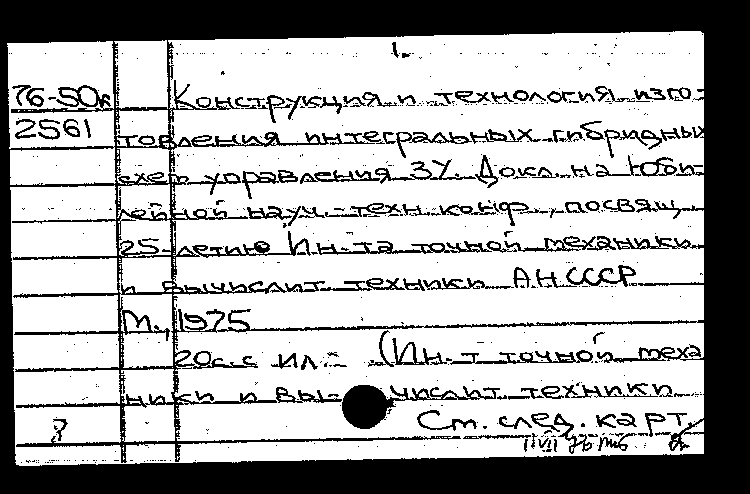 1.
76-50к Конструкция и технология изго-
2561 товления интегральных гибридных
схем управления ЗУ. Докл. на Юби-
лейной науч.-техн. конф., посвящ.
25-летию Ин-та точной механики
и вычислит. техники АН СССР
М., 1975
20с. с ил.- (Ин-т точной меха
ники и вычислит. техники
См. след. карт.